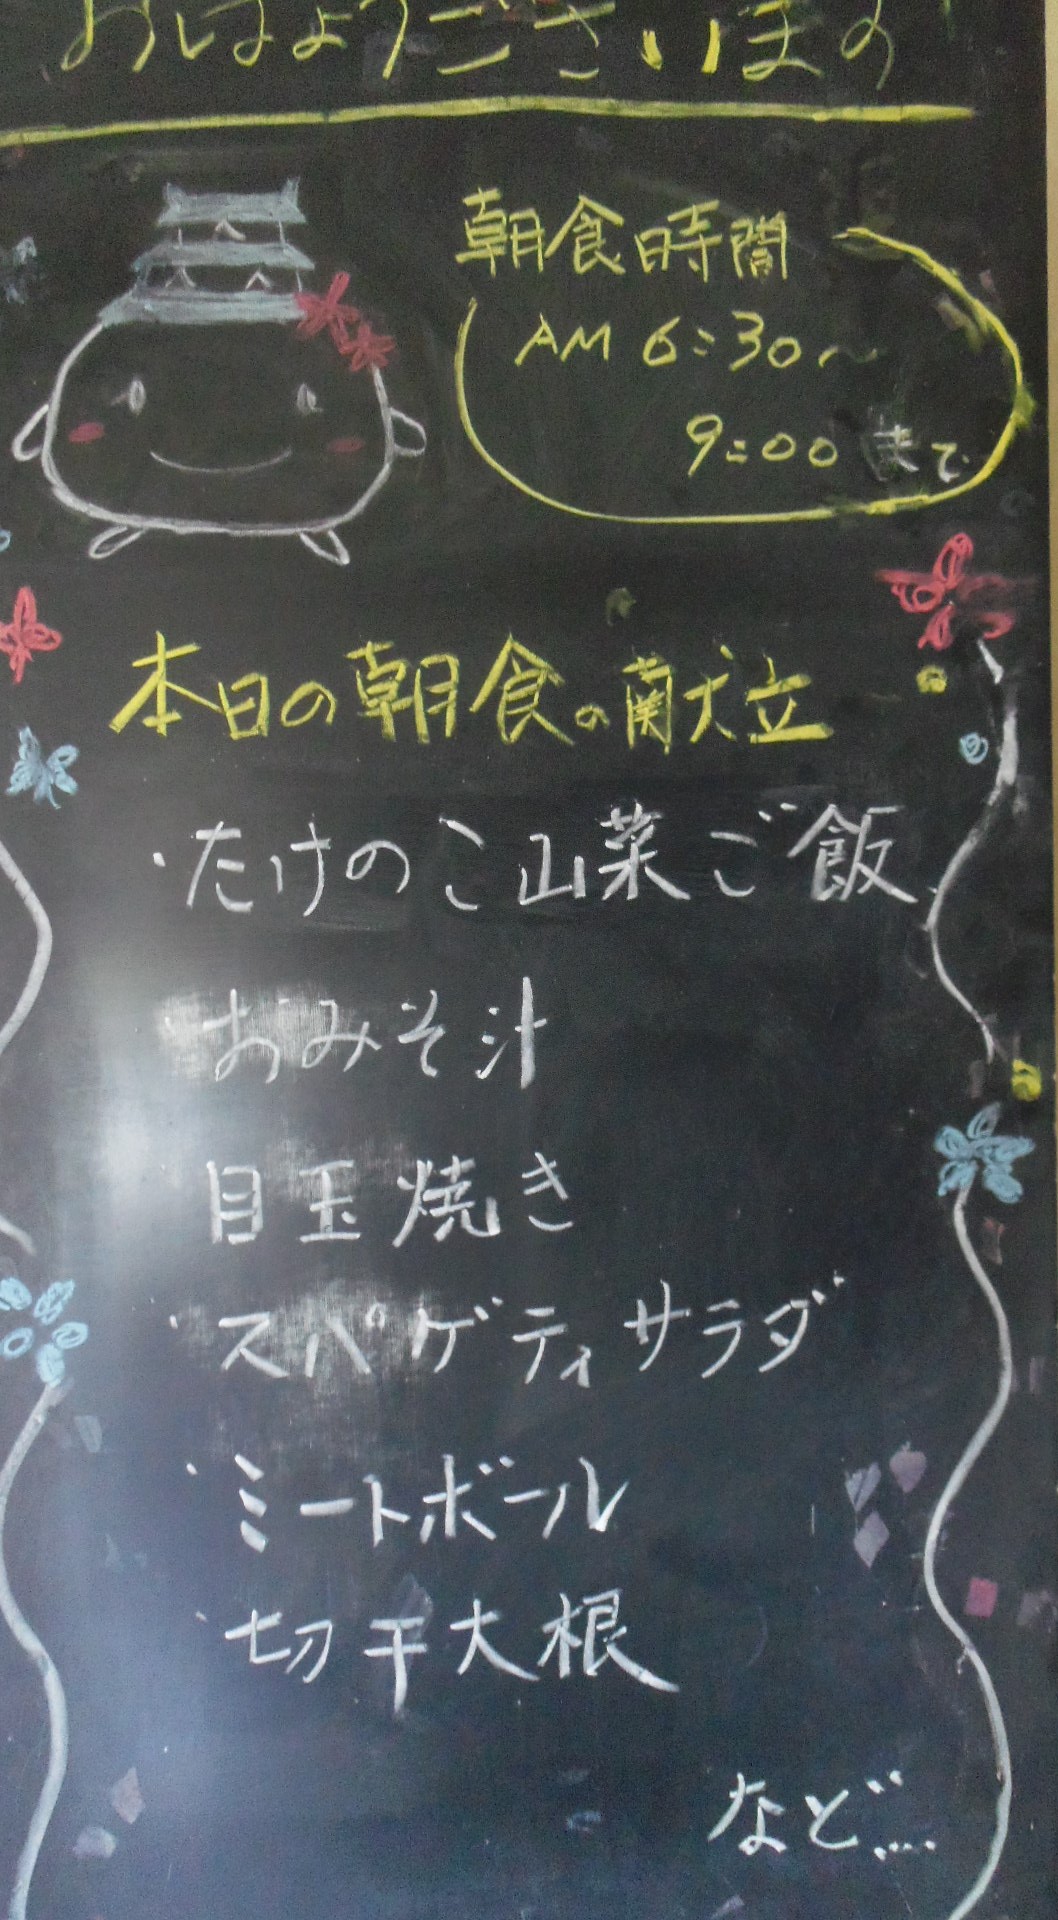 おはようございます
朝食時間
AM 6:30〜
9:00 まで
本日の朝食の献立
・たけのこ山菜ご飯
おみそ汁
目玉焼き
・スパゲティサラダ
・ミートボール
・切干大根
など....